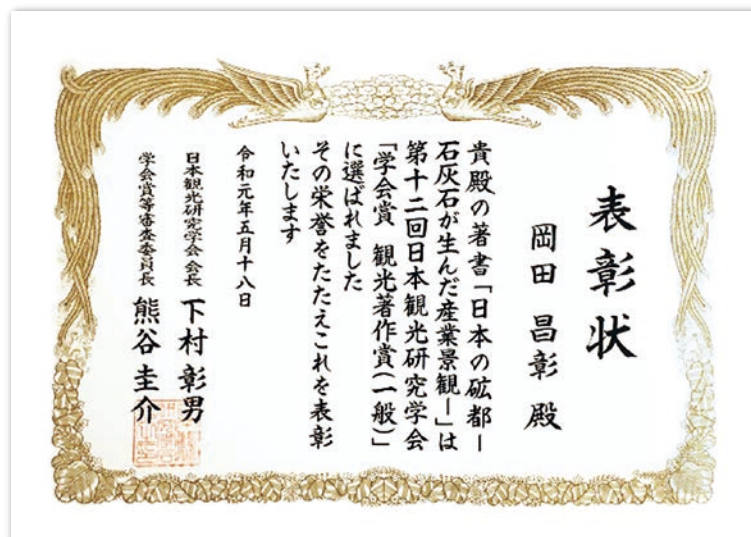 表彰状
岡田 昌彰 殿
貴殿の著書「日本の砿都ー
石灰石が生んだ産業景観ー」は
第十二回日本観光研究学会
「学会賞 観光著作賞(一般)」
に選ばれました
その栄誉をたたえこれを表彰
いたします
令和元年五月十八日
日本観光研究学会会長 下村 彰男
学会賞等審査委員長 熊谷 圭介